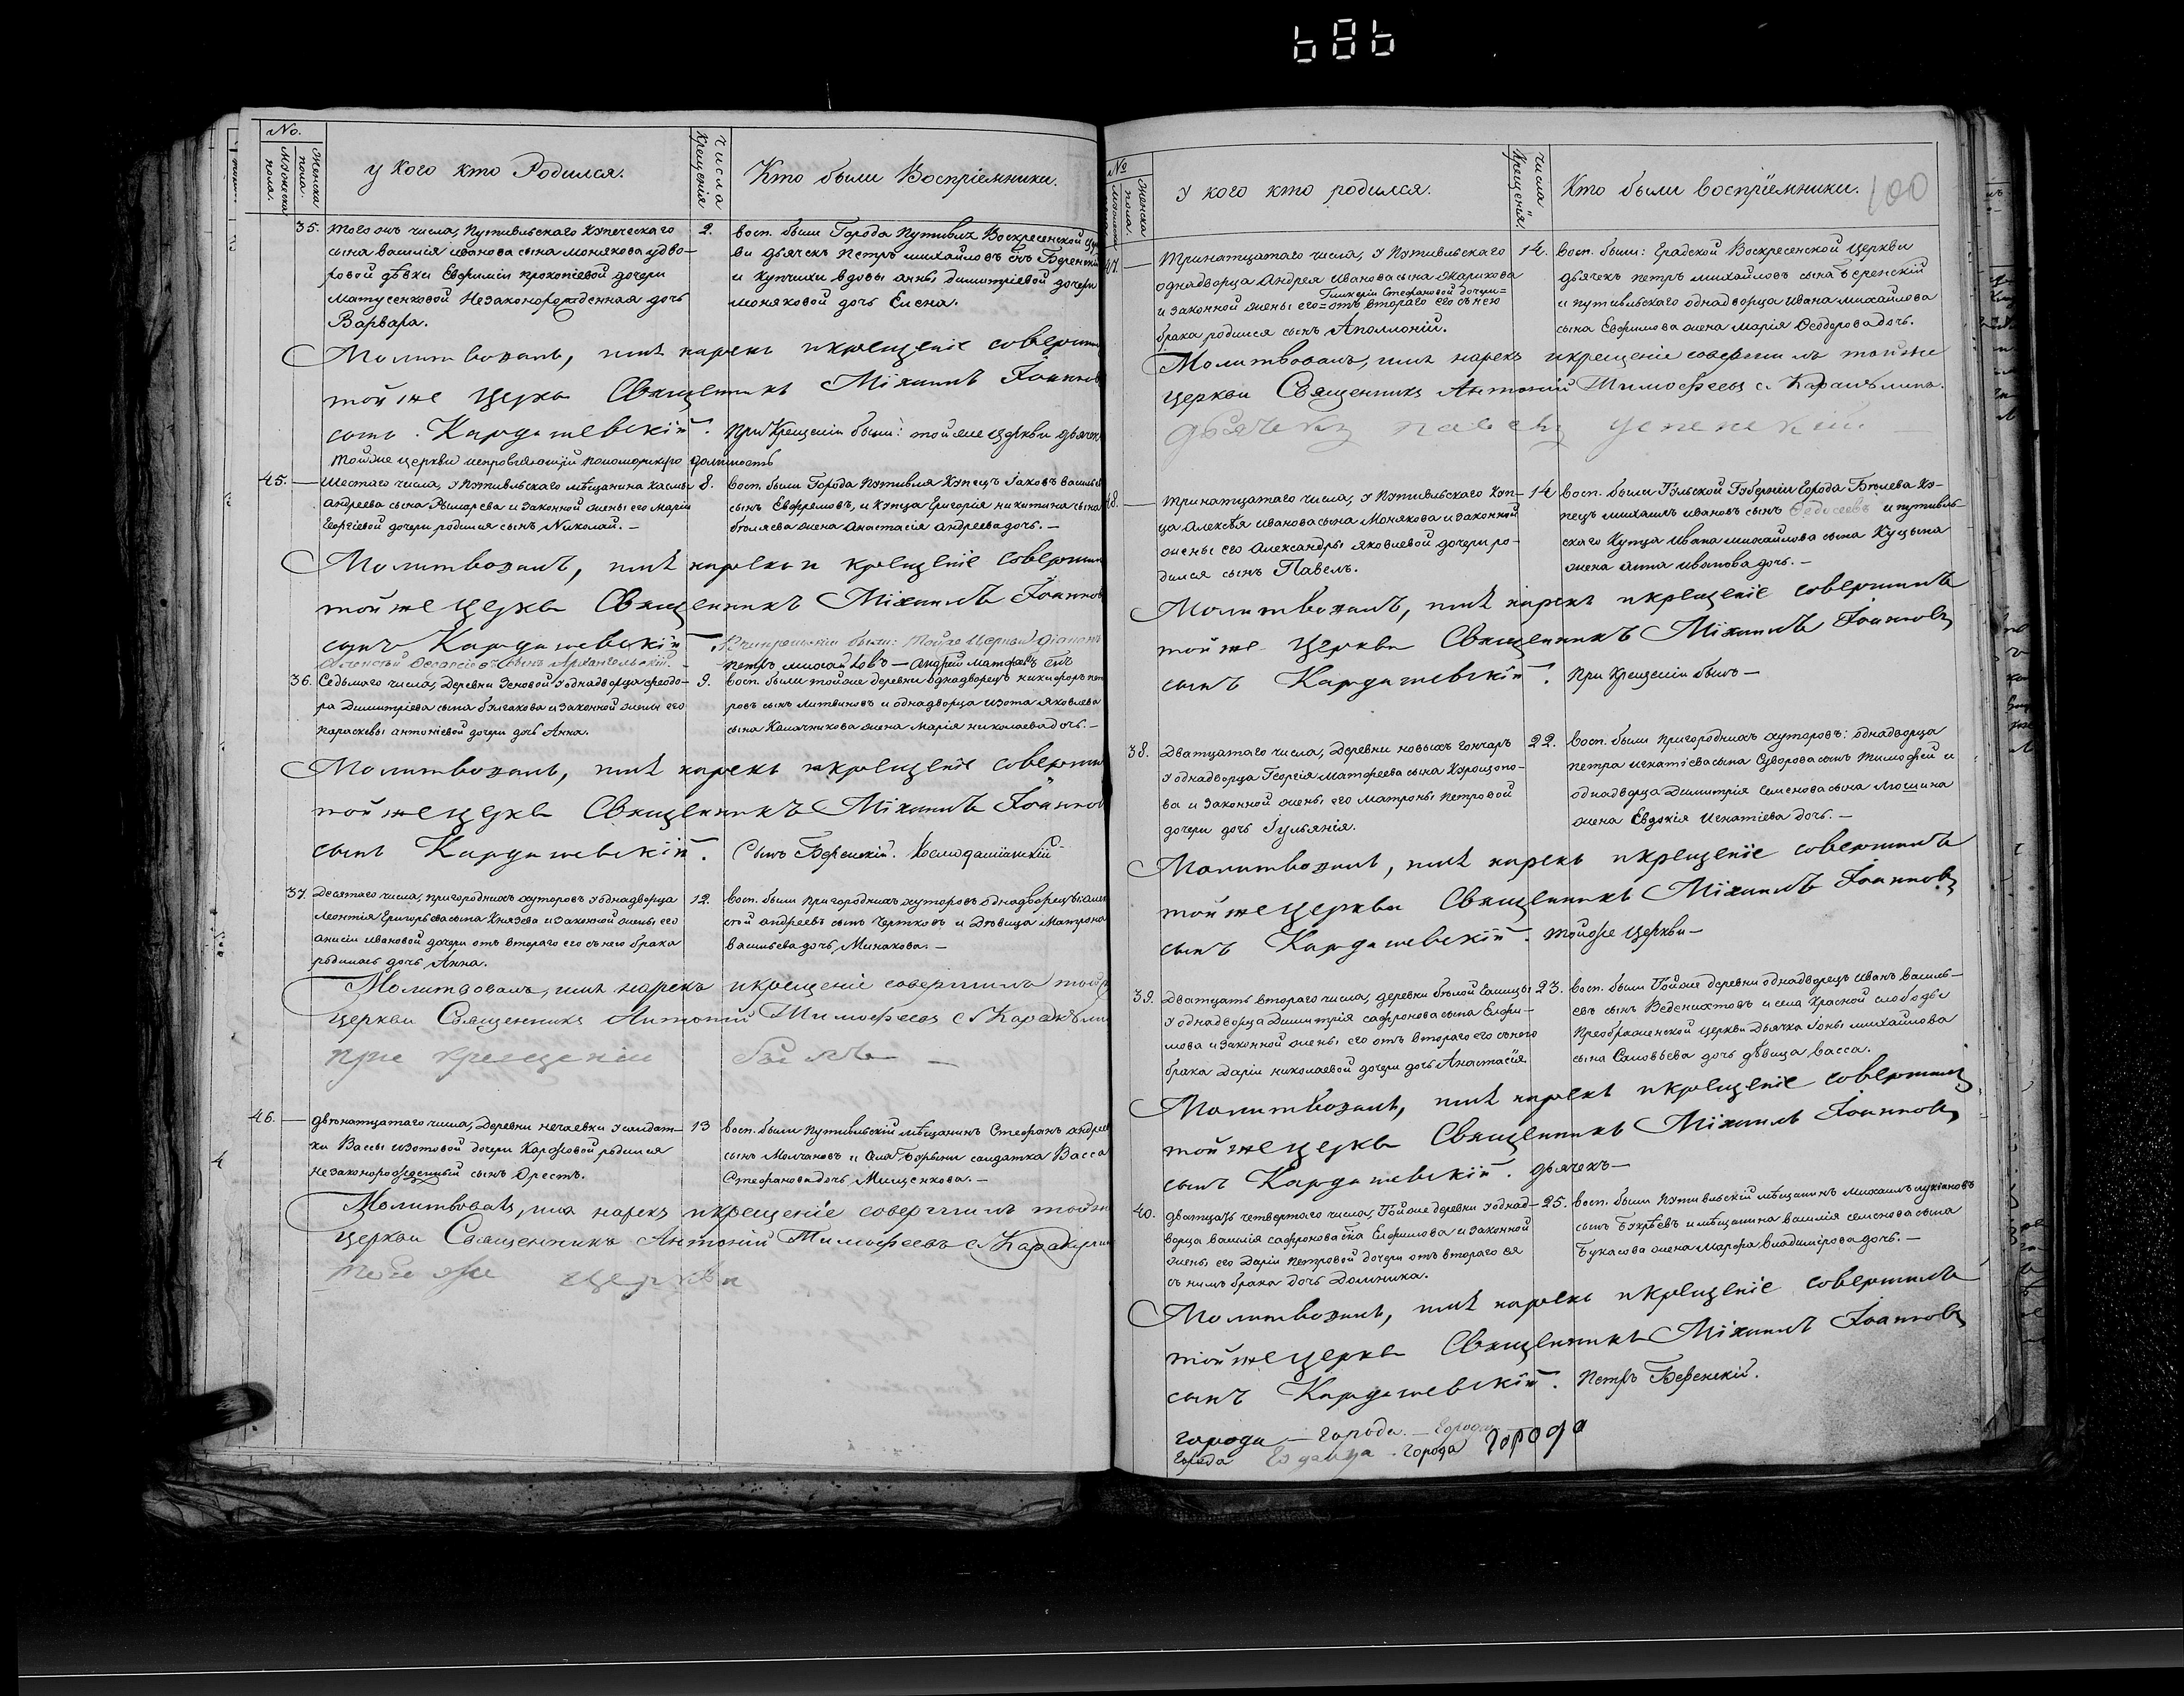 686
No.
Мужеска пола.
Женска пола.
у кого кто Родился.
Числа Крещенія
Кто были Воспріемники.
35. Того онъ числа, Путивльскаго Купеческаго
сына василія иванова сына монякова у дво-
ровой дѣвки Евфиміи прокопіевой дочери
Матусенковой Незаконорожденная дочь
Варвара.
2. восп. были Города Путивля Воскресенской
ви дьячекъ Петръ михайловъ снъ
и купчихи вдовы анны димитріевой дочери
моняковой дочь Елена.
Молитвовалъ, имя нарекъ и крещеніе
той же Церкви Священникъ Міхаилъ
сынъ Кардашевскій. При Крещеніи были: той же церкви
тойже церкви исправляющій пономарскую должность
45. — Шестаго числа, у Путивльскаго мѣщанина
андреева сына Рымарева и законной жены его маріи
Георгіевой дочери родился сынъ Николай. —
8. восп. были Города Путивля Купецъ Іаковъ
сынъ Евфремовъ, и Купца Григорія никитина сына
бѣляева жена анастасія андреева дочь. —
Молитвовалъ, имя нарекъ и крещеніе
той же Церкви Священникъ Міхаилъ
сынъ Кардашевскій. были: Тойже Церкви
сынъ Архангельскій. —
Петръ михайловъ — андрей снъ
36. Седьмаго числа, Деревни у однадворца феодо-
ра Димитріева сына булгакова и законной жены его
параскевы антоніевой дочери дочь Анна.
9. восп. были тойже деревни однадворецъ никифоръ
ровъ сынъ литвиновъ и однадворца изота яковлева
сына Калачникова жена марія николаева дочь. —
Молитвовалъ, имя нарекъ и крещеніе
той же церкви Священникъ Міхаилъ
сынъ Кардашевскій. Сынъ Беренскій. Космодаміанскій
37. Десятаго числа, пригородныхъ хуторовъ у однадворца
леонтія Григорьева сына Князева и законной жены его
анисіи ивановой дочери отъ втораго его съ нею брака
родилась дочь Анна.
12. восп. были пригородныхъ хуторовъ однадворецъ
андреевъ сынъ Чертковъ и Дѣвица Матрона
васильева дочь Минакова. —
Молитвовалъ, имя нарекъ и крещеніе совершилъ
церкви Священникъ Антоній Тимофеевъ
при крещеніи былъ —
46. — двѣнатцатаго числа, Деревни нечаевки у солдат-
ки Вассы изотовой дочери родился
незаконорожденный сынъ Орестъ.
13 восп. были путивльскій мѣщанинъ Стефанъ
сынъ Молчановъ и солдатка Васса
Стефанова дочь Мищенкова. —
Молитвовалъ, имя нарекъ и крещеніе совершилъ
церкви Священникъ Антоній Тимофеевъ
той же церкви
№
Женска пола.
У кого кто родился.
Числа Крещенія.
Кто были воспріемники.
100
47. — Тринатцатаго числа, у Путивльскаго
однадворца Андрея иванова сына
Гликеріи Стефановой дочери=
и законной жены его=отъ втораго его съ нею
брака родился сынъ Аполлоній.
14. восп. были: Градской Воскресенской церкви
дьячекъ петръ михайловъ сынъ беренскій
и путивльскаго однадворца ивана михайлова
сына Евфимова жена марія Феодорова дочь.
Молитвовалъ, имя нарекъ и крещеніе совершилъ тойже
церкви Священникъ Антоній Тимофеевъ с.
дьячекъ павелъ успенскій —
48. — Тринатцатаго числа, у Путивльскаго куп-
ца алексѣя иванова сына Монякова и законной
жены его Александры яковлевой дочери ро-
дился сынъ Павелъ.
14 восп. были Тульской Губерніи Города Бѣлева Ку-
пецъ михаилъ ивановъ сынъ и путивль-
скаго Купца ивана михайлова сына Куцына
жена анна иванова дочь. —
Молитвовалъ, имя нарекъ и крещеніе совершилъ
той же Церкви Священникъ Міхаилъ Іоанновъ
сынъ Кардашевскій. При Крещеніи былъ —
38. Дватцатаго числа, Деревни новыхъ гончаръ
у однадворца Георгія матфеева сына
ва и законной жены его матроны петровой
дочери дочь Іульянія.
22. восп. были пригородныхъ хуторовъ: однадворца
петра игнатіева сына Суворова сынъ тимофей и
однадворца Димитрія семенова сына
жена Евдокія Игнатіева дочь. —
Молитвовалъ, имя нарекъ и крещеніе совершилъ
той же церкви Священникъ Міхаилъ Іоанновъ
сынъ Кардашевскій. тойже церкви —
39. Дватцать втораго числа, деревни бѣлой
у однадворца Димитрія сафронова сына Елфи-
мова и законной жены его отъ втораго его съ нею
брака Даріи николаевой дочери дочь Анастасія
23. восп. были Тойже деревни однадворецъ иванъ василь-
евъ сынъ и села Красной слободы
Преображенской церкви Дьячка Іоны михайлова
сына Соловьева дочь дѣвица васса.
Молитвовалъ, имя нарекъ и крещеніе совершилъ
той же церкви Священникъ Міхаилъ Іоанновъ
сынъ Кардашевскій. дьячекъ —
40. дватцать четвертаго числа, Тойже деревни у однад-
ворца василія сафронова сна Елфимова и законной
жены его Даріи петровой дочери отъ втораго ея
съ нимъ брака дочь Домника.
25. восп. были путивльскій мѣщанинъ михаилъ лукіановъ
сынъ и мѣщанина василія семенова сына
Букасова жена марфа владимірова дочь. —
Молитвовалъ, имя нарекъ и крещеніе совершилъ
той же церкви Священникъ Міхаилъ Іоанновъ
сынъ Кардашевскій. Петръ Беренскій.
города — города. — Города
города города города